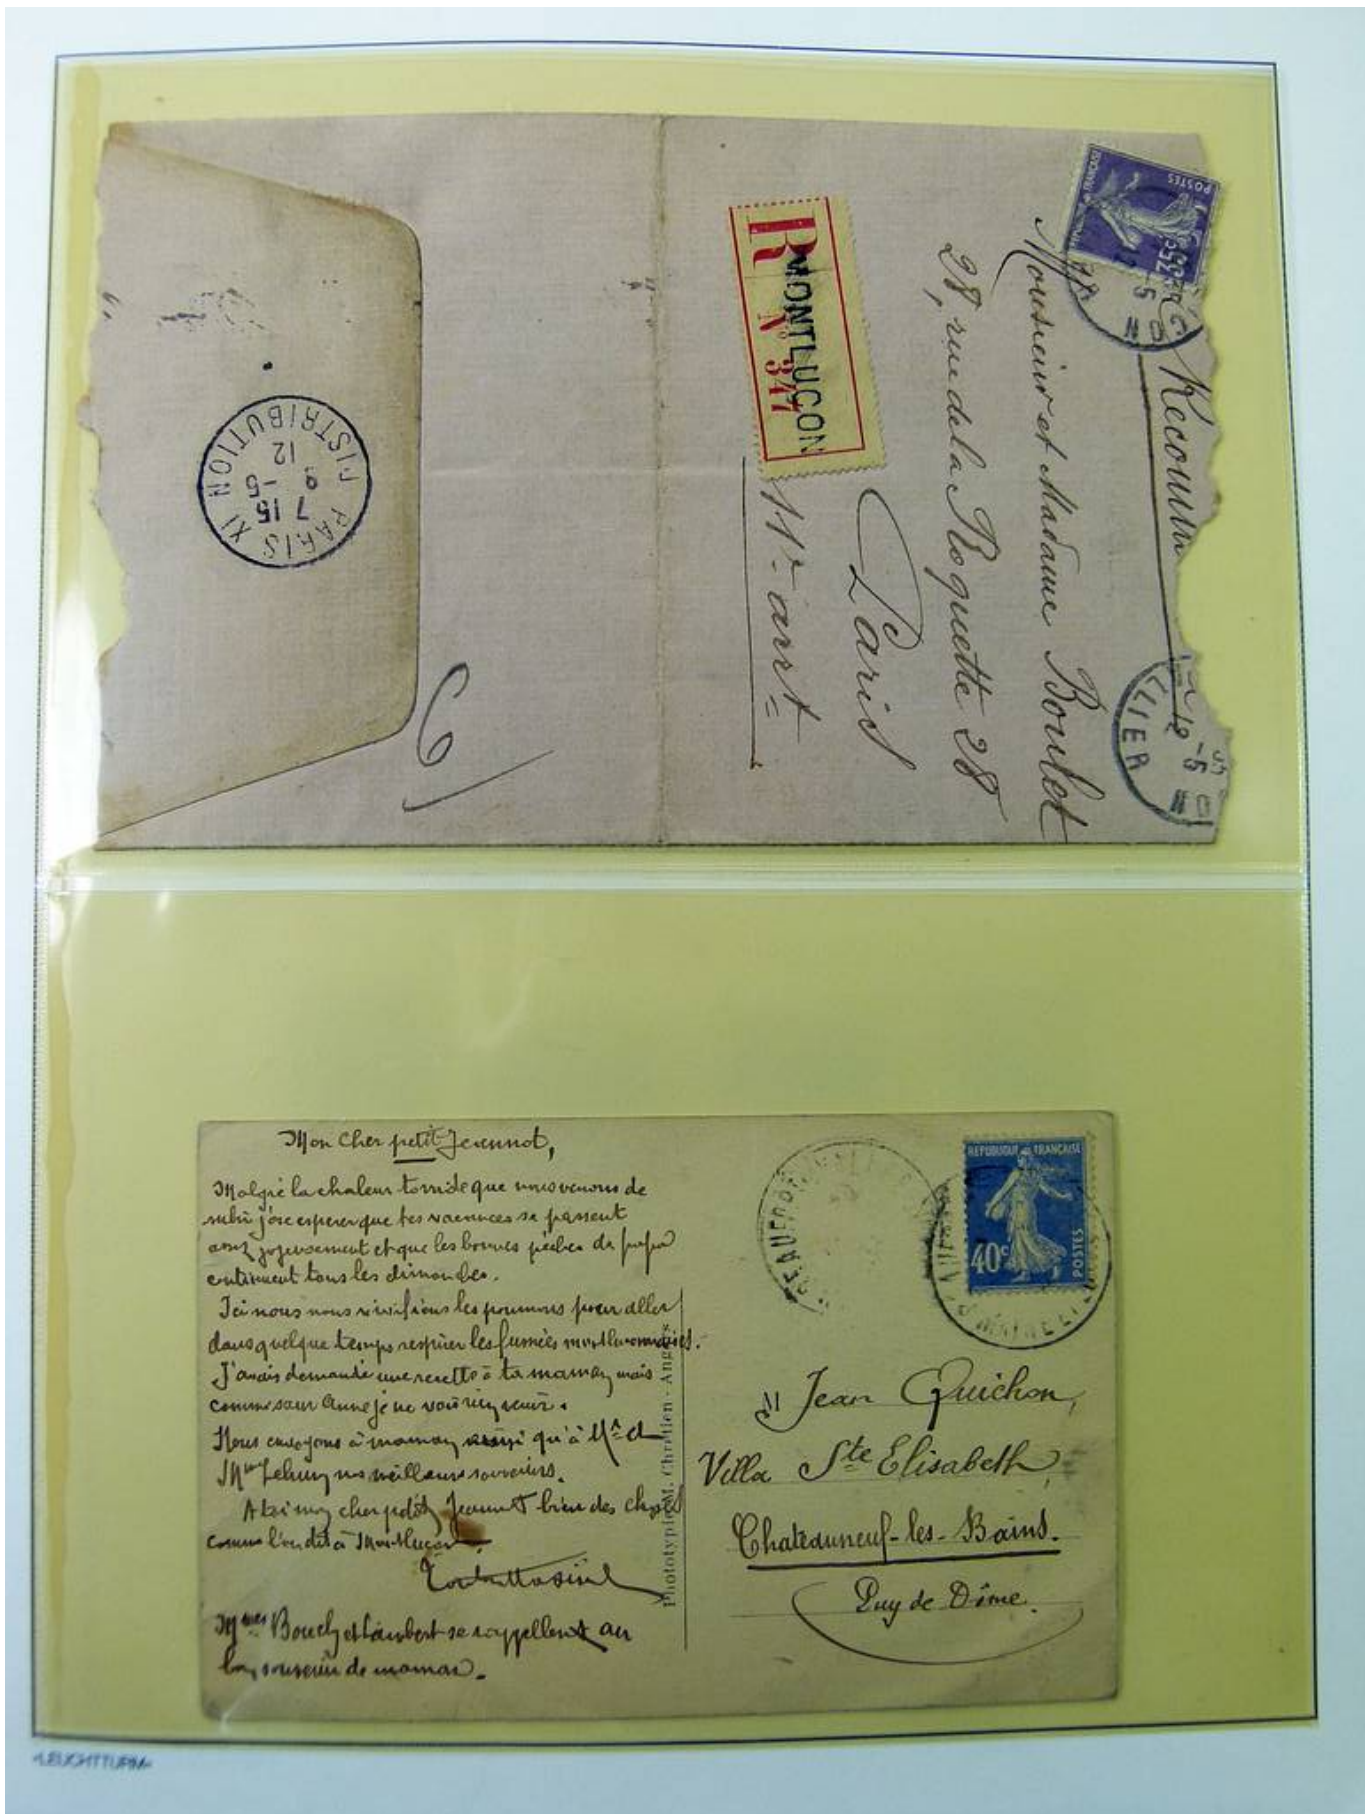 RÉPUBLIQUE FRANÇAISE
POSTES
35c
Monsieur et Madame Boulet
28, rue de la Roquette 28
Paris
11e arrt
R
MONTLUCON
No 347
LIER
PARIS XI
7 15
9 -5
12
DISTRIBUTION
Mon cher petit Jeannot,
Malgré la chaleur torride que nous venons de
subir j'ose esperer que tes vacances se passent
assez joyeusement et que les bonnes pêches de papa
continuent tous les dimanches.
Ici nous nous vivifions les poumons pour aller
dans quelque temps respirer les fumées montluçonnaises.
J'avais demandé une recette à ta maman mais
comme sœur Anne je ne vois rien venir.
Nous envoyons à maman ainsi qu'à Mr et
Mme nos meilleurs souvenirs.
A toi mon cher petit Jeannot bien des choses
comme l'on dit à Montluçon
Mmes Bouely et Lambert se rappellent au
bon souvenir de maman.
Phototypie M. Chrétien - Angers
REPUBLIQUE FRANÇAISE
40c
POSTES
M Jean Guichon,
Villa Ste Elisabeth,
Chateauneuf-les-Bains.
Puy de Dôme.
LEUCHTTURM